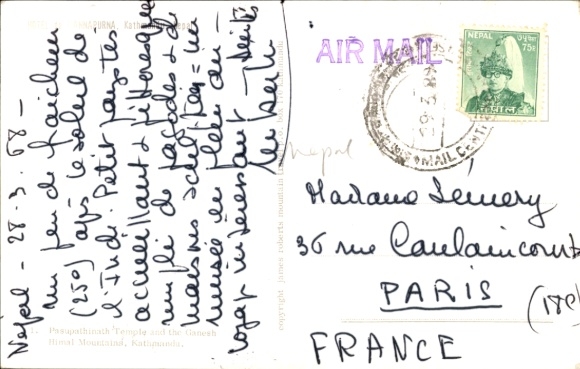 Nepal - 28-3.68 -
un peu de fraicheur
(25°) après le soleil de
l'Inde. Petit pays très
accueillant & pittoresque
rempli de façades & de
maisons sculptées = un
musée en plein air -
voyage intéressant - amitiés
AIR MAIL
NEPAL
75
नेपाल
MAIL CENT
nepal
Madame Lemery
36 rue Caulaincourt
PARIS
(18e)
FRANCE
copyright james roberts mountain
ANNAPURNA, Kathmandu, Nepal
1. Pasupathinath Temple and the Ganesh
Himal Mountains, Kathmandu.